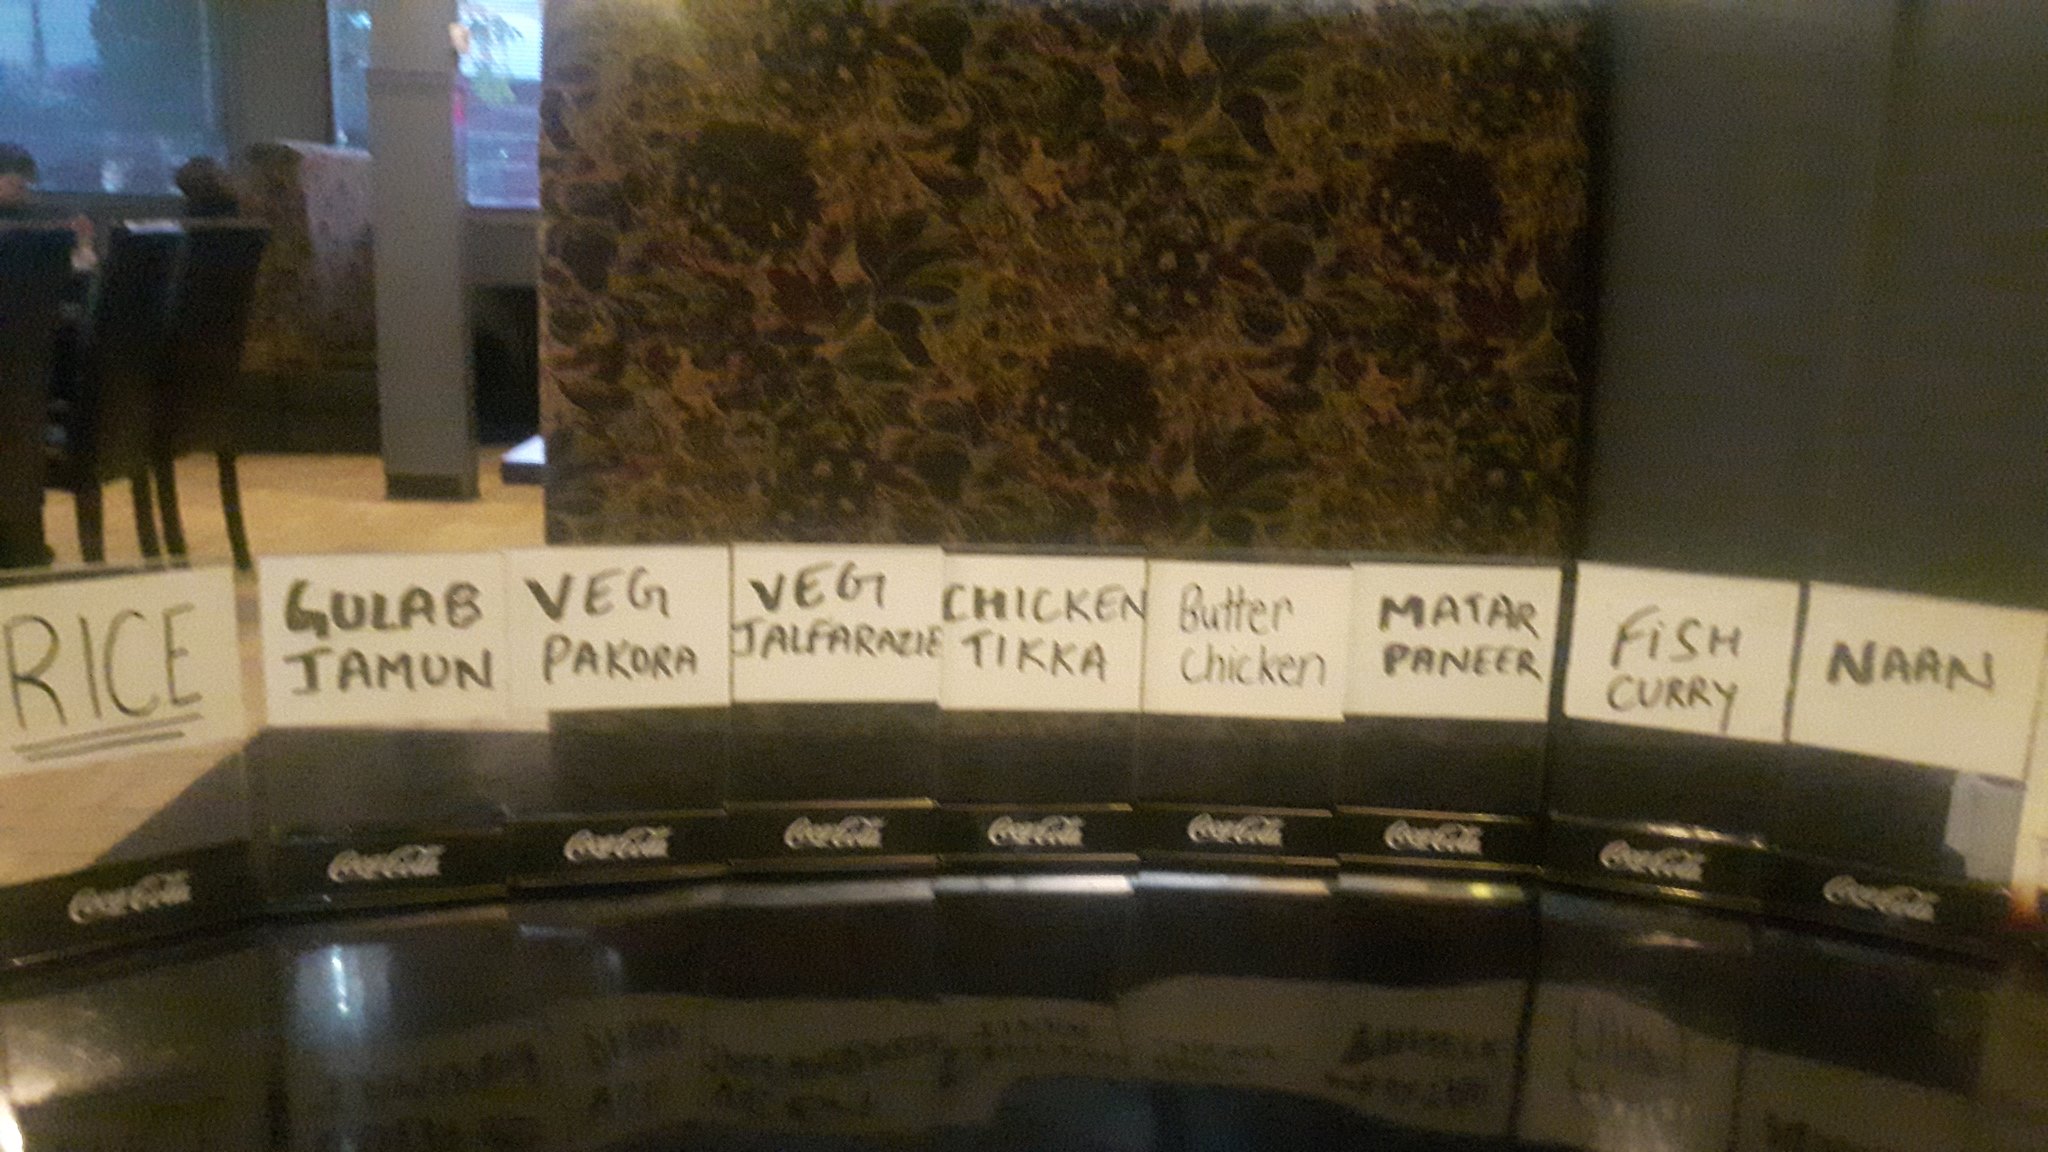 RICE
GULAB
JAMUN
VEG
PAKORA
VEG
JALFARAZIE
CHICKEN
TIKKA
Butter
Chicken
MATAR
PANEER
FISH
CURRY
NAAN
Coca-Cola
Coca-Cola
Coca-Cola
Coca-Cola
Coca-Cola
Coca-Cola
Coca-Cola
Coca-Cola
Coca-Cola